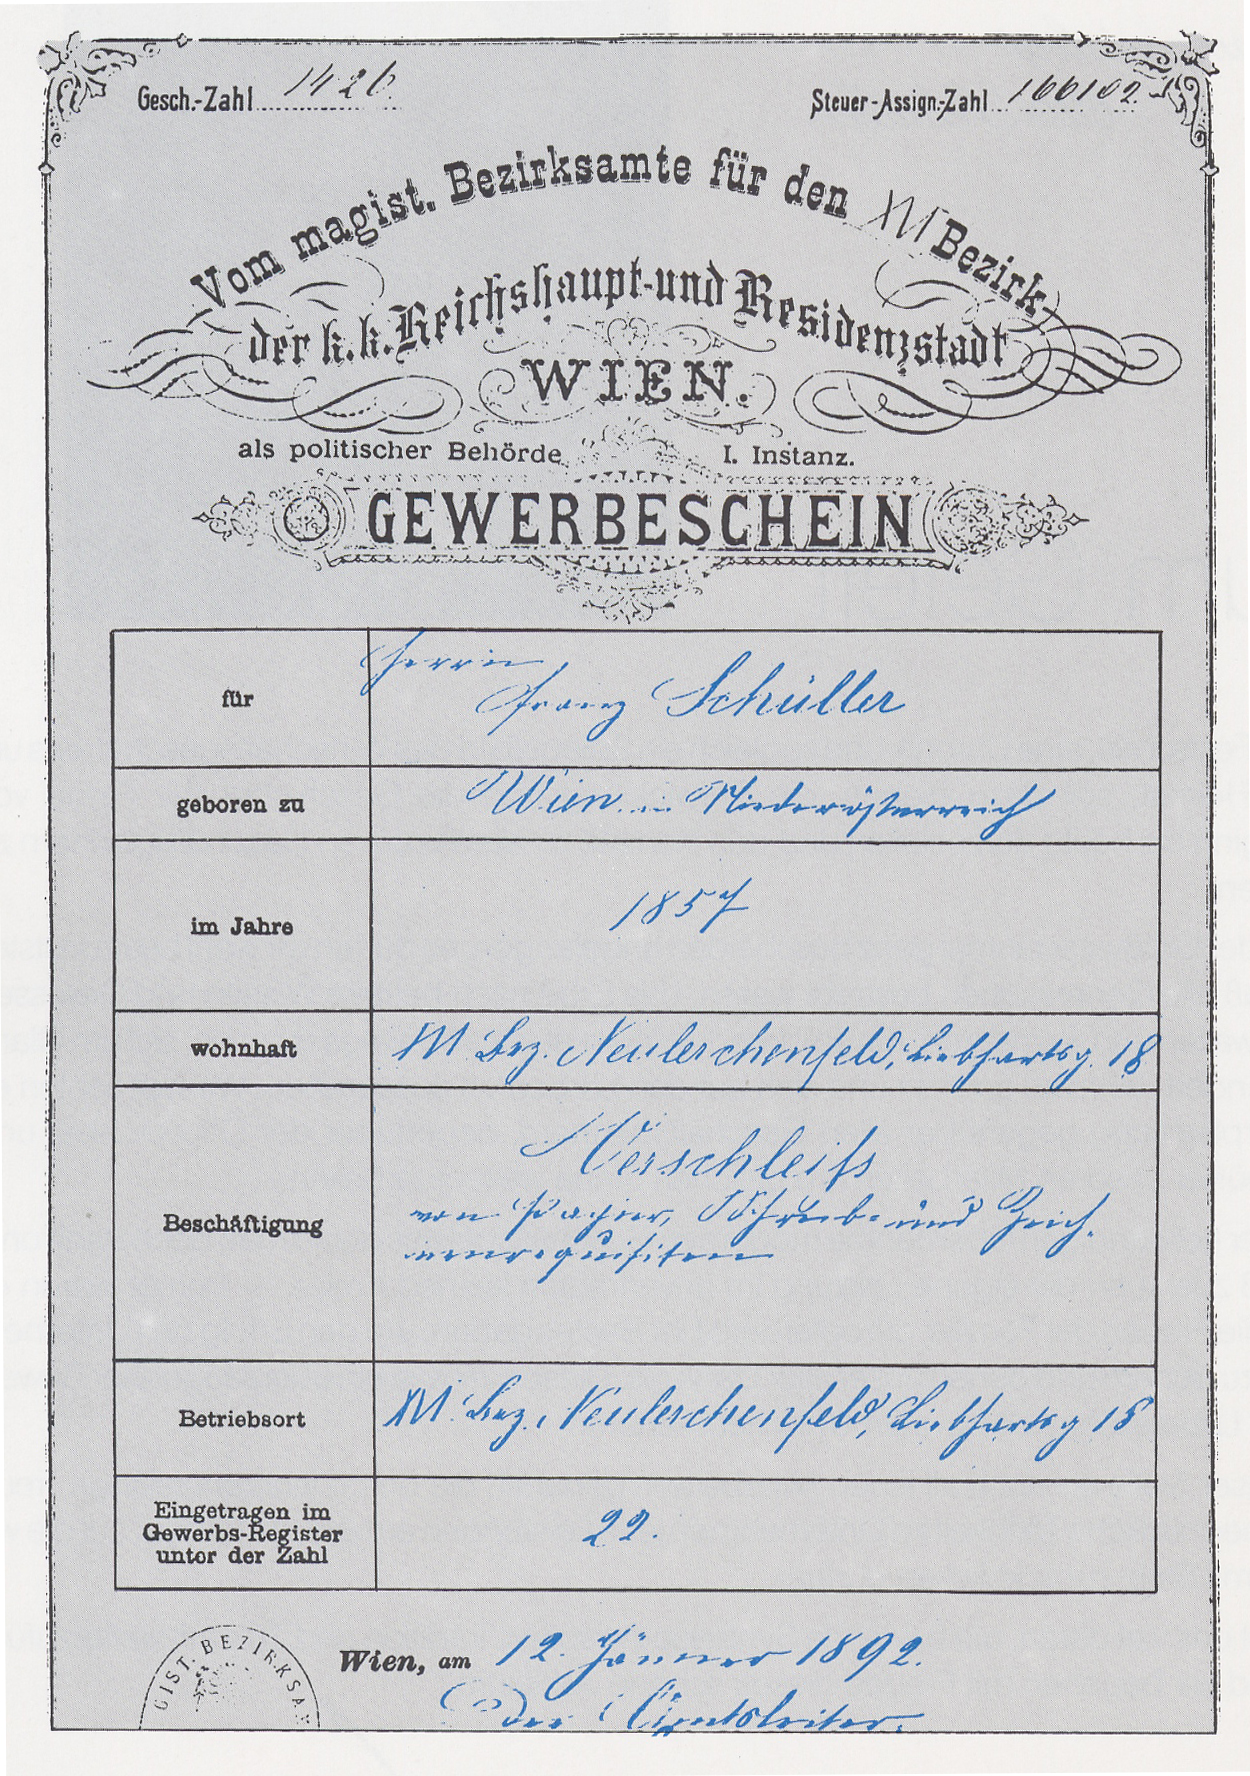 Gesch.-Zahl 1426.
Steuer-Assign.-Zahl 166102
Vom magist. Bezirksamte für den XVI Bezirk
der k. k. Reichshaupt- und Residenzstadt
WIEN.
als politischer Behörde I. Instanz.
GEWERBESCHEIN
für
Herrn
Franz Schüller
geboren zu
Wien in Niederösterreich
im Jahre
1857
wohnhaft
XVI Bez. Neulerchenfeld, Liebhartsg. 18
Beschäftigung
Verschleiß
von Papier, Schreib- und Zeich-
nenrequisiten
Betriebsort
XVI. Bez., Neulerchenfeld, Liebhartsg 18
Eingetragen im
Gewerbs-Register
unter der Zahl
22.
GIST. BEZIRKSAM
Wien, am 12. Jänner 1892.
Der Amtsleiter.